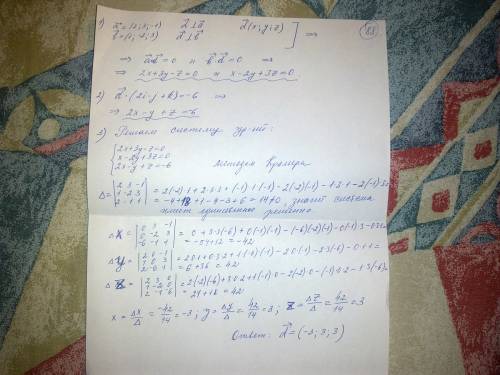 1) a⃗=(2; 3; -1) d⃗⊥a⃗ d⃗(x; y; z)
b⃗=(1; -2; 3) d⃗⊥b⃗ ] ⇒
88
⇒ a⃗d⃗=0 и b⃗·d⃗=0 ⇒
⇒ 2x+3y-z=0 и x-2y+3z=0.
2) d⃗·(2i-j+k)=-6 ⇒
⇒ 2x-y+z=-6
3) Решаем систему ур-ий:
{2x+3y-z=0
x-2y+3z=0
2x-y+z=-6
методом Крамера
Δ=|2 3 -1
1 -2 3
2 -1 1| = 2(-2)·1+2·3·3+(-1)·1·(-1)-2(-2)(-1)-1·3·1-2(-1)·3=
=-4+18+1-4-3+6=14≠0, значит система
имеет единственное решение
ΔX=|0 3 -1
0 -2 3
-6 -1 1| = 0+3·3(-6)+0(-1)(-1)-(-6)(-2)(-1)-0(-1)·3-0·3·1=
=-54+12=-42
ΔY=|2 0 -1
1 0 3
2 -6 1| = 2·0·1+0·3·2+1·(-6)(-1)-2·0(-1)-2·3(-6)-0·1·1=
=6+36=42
ΔZ=|2 3 0
1 -2 0
2 -1 -6| = 2(-2)(-6)+3·0·2+1(-1)·0-2(-2)·0-(-1)·0·2-1·3(-6)=
=24+18=42
x=ΔX/Δ=-42/14=-3; y=ΔY/Δ=42/14=3; z=ΔZ/Δ=42/14=3
Ответ: d⃗=(-3; 3; 3)